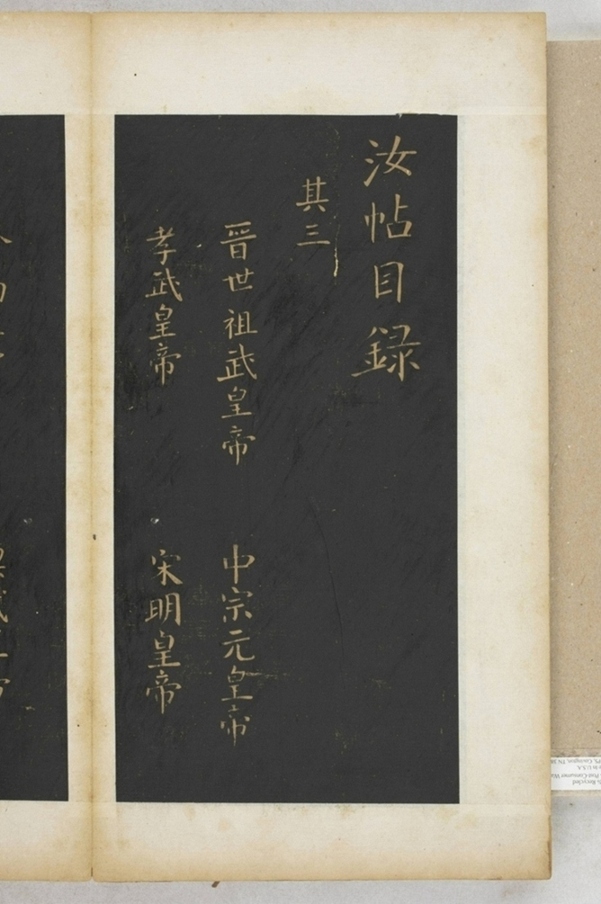 汝帖目録
其三
晉世祖武皇帝
中宗元皇帝
孝武皇帝
宋明皇帝